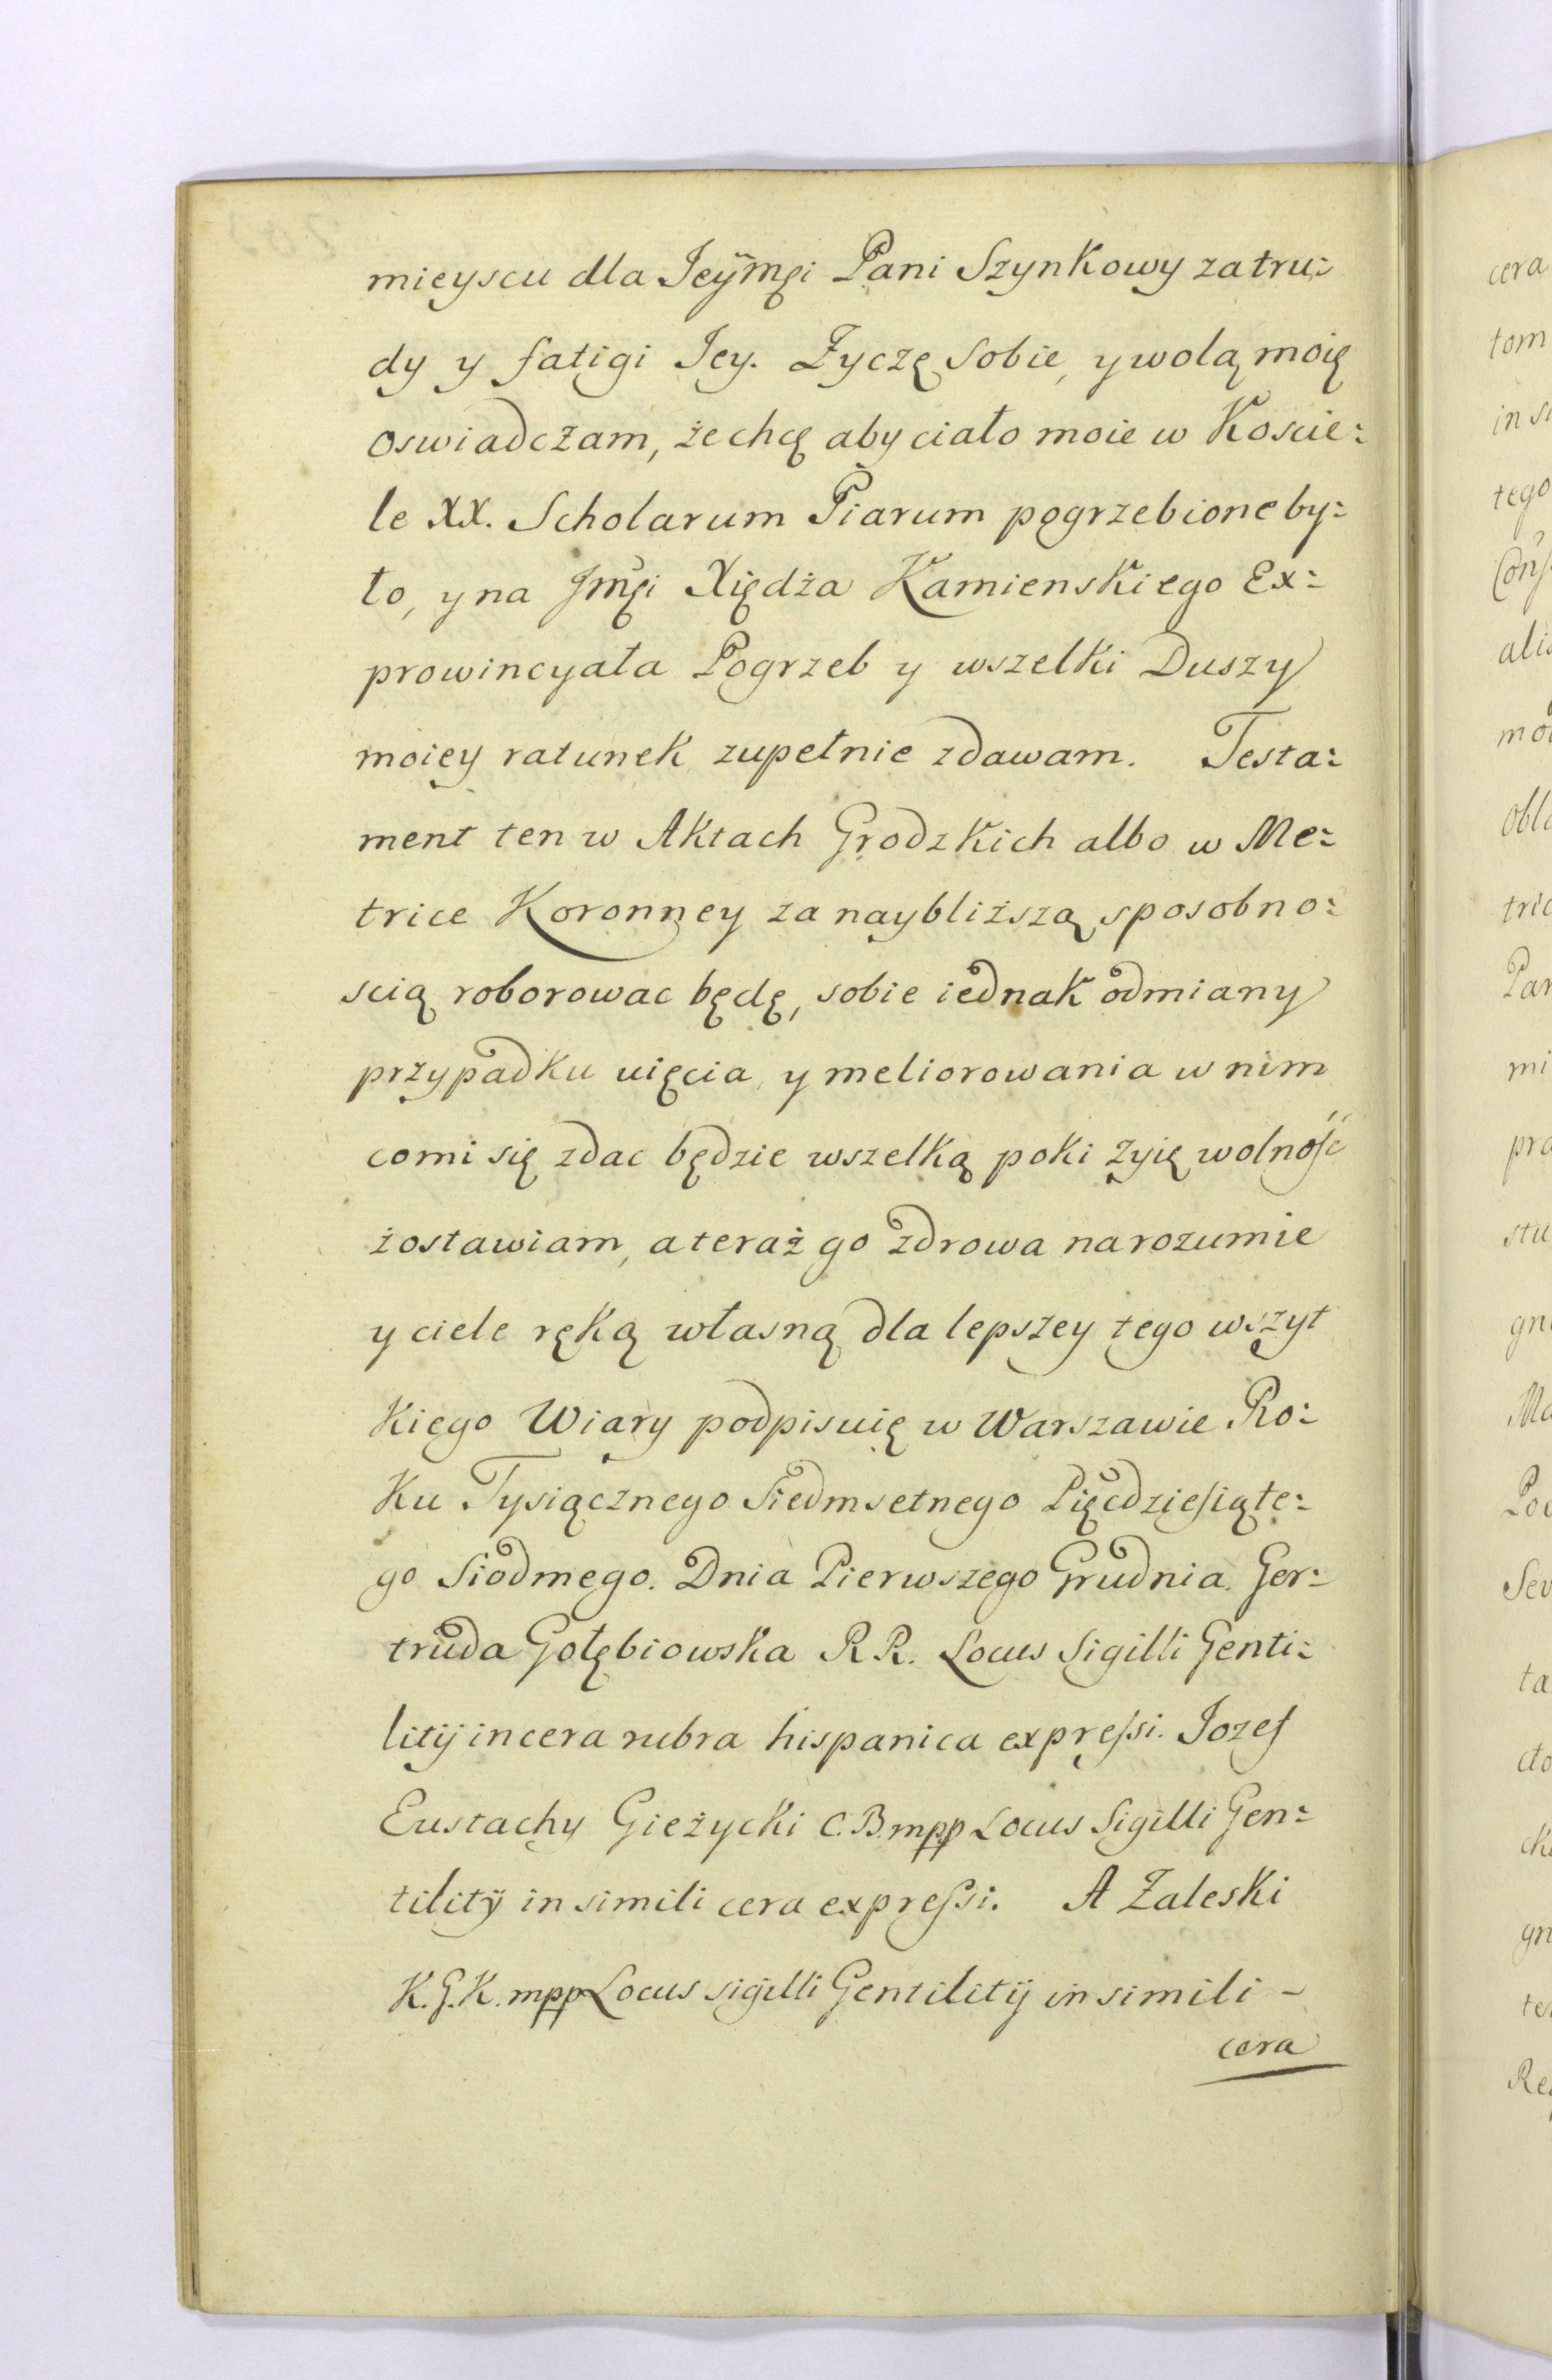 mieyscu dla Jeÿmęi Pani Szynkowy za tru:
dy y fatigi Jey. Zyczę sobie, y wolą moię
oswiadcżam, że chcę aby ciało moie w Koscie:
le XX. Scholarum Piarum pogrzebione by:
ło, y na Jmęi Xiędża Kamienskiego Ex:
prowincyała Pogrzeb y wszelki Duszy
moiey ratunek zupełnie zdawam. Testa:
ment ten w Aktach Grodzkich albo w Me:
trice Koronney za naybliższą sposobno:
scią roborowac będę, sobie iednak odmiany
przypadku uięcia y meliorowania w nim
co mi się zdac będzie wszelką poki żyię wolność
żostawiam, a teraż go zdrowa na rozumie
y ciele ręką własną dla lepszey tego wszyt
kiego Wiary podpisuię w Warszawie Ro:
ku Tysiącznego Siedmsetnego Pięcdziesiąte:
go Siodmego. Dnia Pierwszego Grudnia. Ger:
truda Gołębiowska RR. Locus Sigilli Genti:
litij in cera rubra hispanica expressi. Jozef
Eustachy Gieżycki C.B. mpp Locus Sigilli Gen:
tilitij in simili cera expressi. A Zaleski
K.G.K. mpp Locus sigilli Gentilitij in simili -
cera
cera
tom
in si
tego
Cons
alia
mo
obla
tric
Pan
mi
pra
stu
gni
Ma
Poc
Sev
ta
cto
cki
gn
te
Re